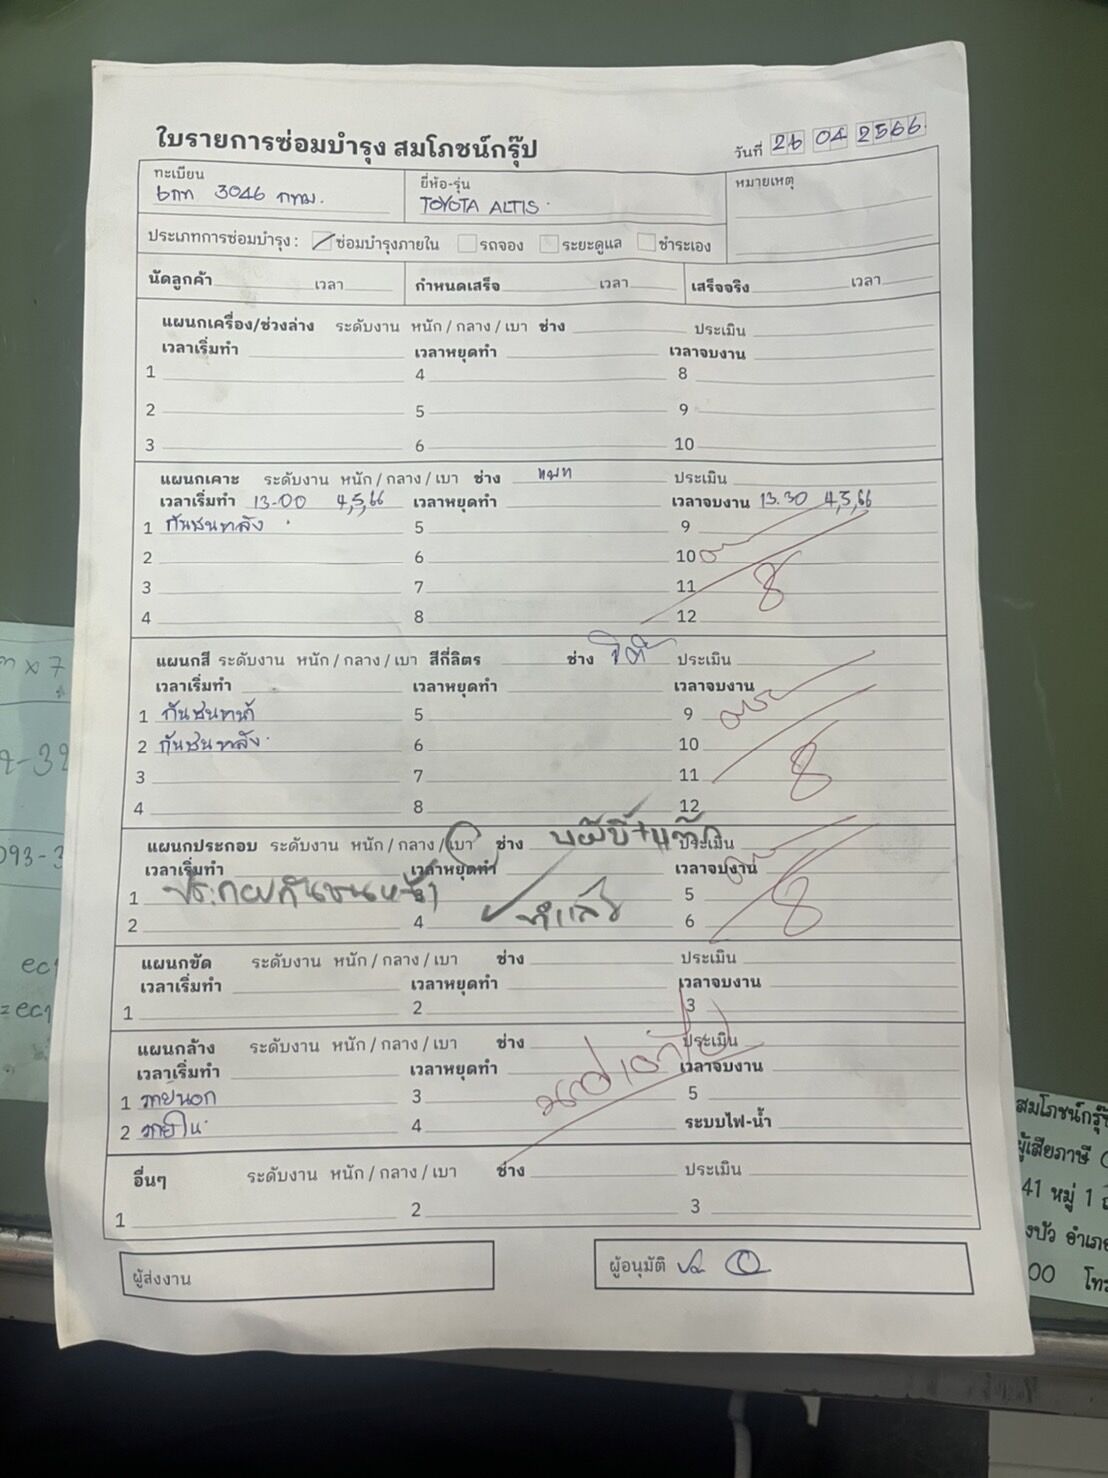 ใบรายการซ่อมบำรุง สมโภชน์กรุ๊ป
วันที่ 26 04 2566
ทะเบียน
3046 กทม.
ยี่ห้อ-รุ่น
TOYOTA ALTIS
หมายเหตุ
ประเภทการซ่อมบำรุง: ซ่อมบำรุงภายใน รถจอง ระยะดูแล ชำระเอง
นัดลูกค้า เวลา กำหนดเสร็จ เวลา เสร็จจริง เวลา
แผนกเครื่อง/ช่วงล่าง ระดับงาน หนัก/กลาง/เบา ช่าง ประเมิน
เวลาเริ่มทำ เวลาหยุดทำ เวลาจบงาน
1 4 8
2 5 9
3 6 10
แผนกเคาะ ระดับงาน หนัก/กลาง/เบา ช่าง ประเมิน
เวลาเริ่มทำ 13-00 4,5,66 เวลาหยุดทำ เวลาจบงาน 13.30 4,5,66
1 กันชนหลัง 5 9
2 6 10
3 7 11 8
4 8 12
แผนกสี ระดับงาน หนัก/กลาง/เบา สีกี่ลิตร ช่าง ประเมิน
เวลาเริ่มทำ เวลาหยุดทำ เวลาจบงาน
1 กันชนหน้า 5 9
2 กันชนหลัง 6 10
3 7 11 8
4 8 12
แผนกประกอบ ระดับงาน หนัก/กลาง/เบา ช่าง ประเมิน
เวลาเริ่มทำ เวลาหยุดทำ เวลาจบงาน
1 ประกอบกันชนหน้า 5 8
2 4 ทำแล้ว 6
แผนกขัด ระดับงาน หนัก/กลาง/เบา ช่าง ประเมิน
เวลาเริ่มทำ เวลาหยุดทำ เวลาจบงาน
1 2 3
แผนกล้าง ระดับงาน หนัก/กลาง/เบา ช่าง ประเมิน
เวลาเริ่มทำ เวลาหยุดทำ เวลาจบงาน
1 ภายนอก 3 5
2 ภายใน 4 ระบบไฟ-น้ำ
อื่นๆ ระดับงาน หนัก/กลาง/เบา ช่าง ประเมิน
1 2 3
ผู้ส่งงาน
ผู้อนุมัติ
สมโภชน์กรุ๊ป
ผู้เสียภาษี
41 หมู่ 1
อำเภอ
00 โทร